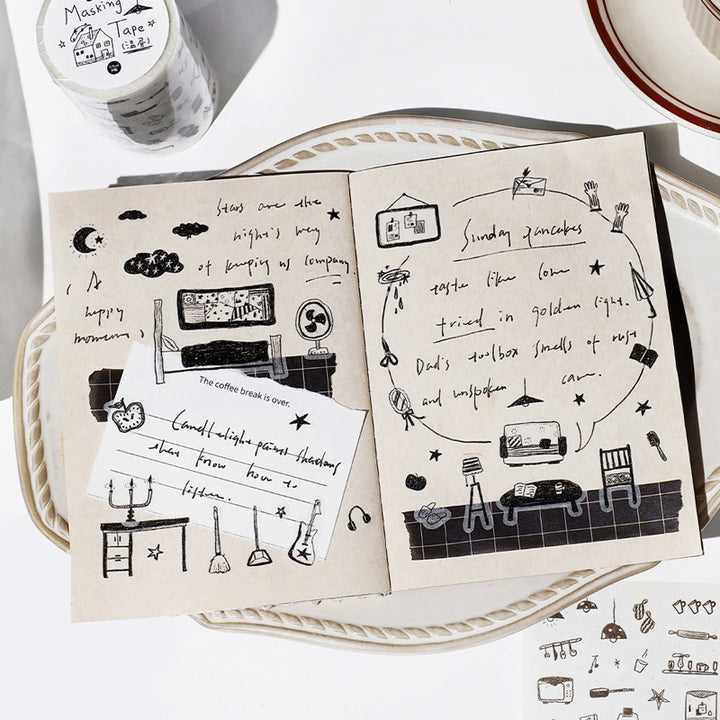 Masking
Tape
(温屋)
Stars are the
night's way
of keeping us company.
( A
happy
moment )
The coffee break is over.
Candlelight paints shadows
that know how to
listen.
Sunday pancakes
taste like love
fried in golden light.
Dad's toolbox smells of rust
and unspoken care.